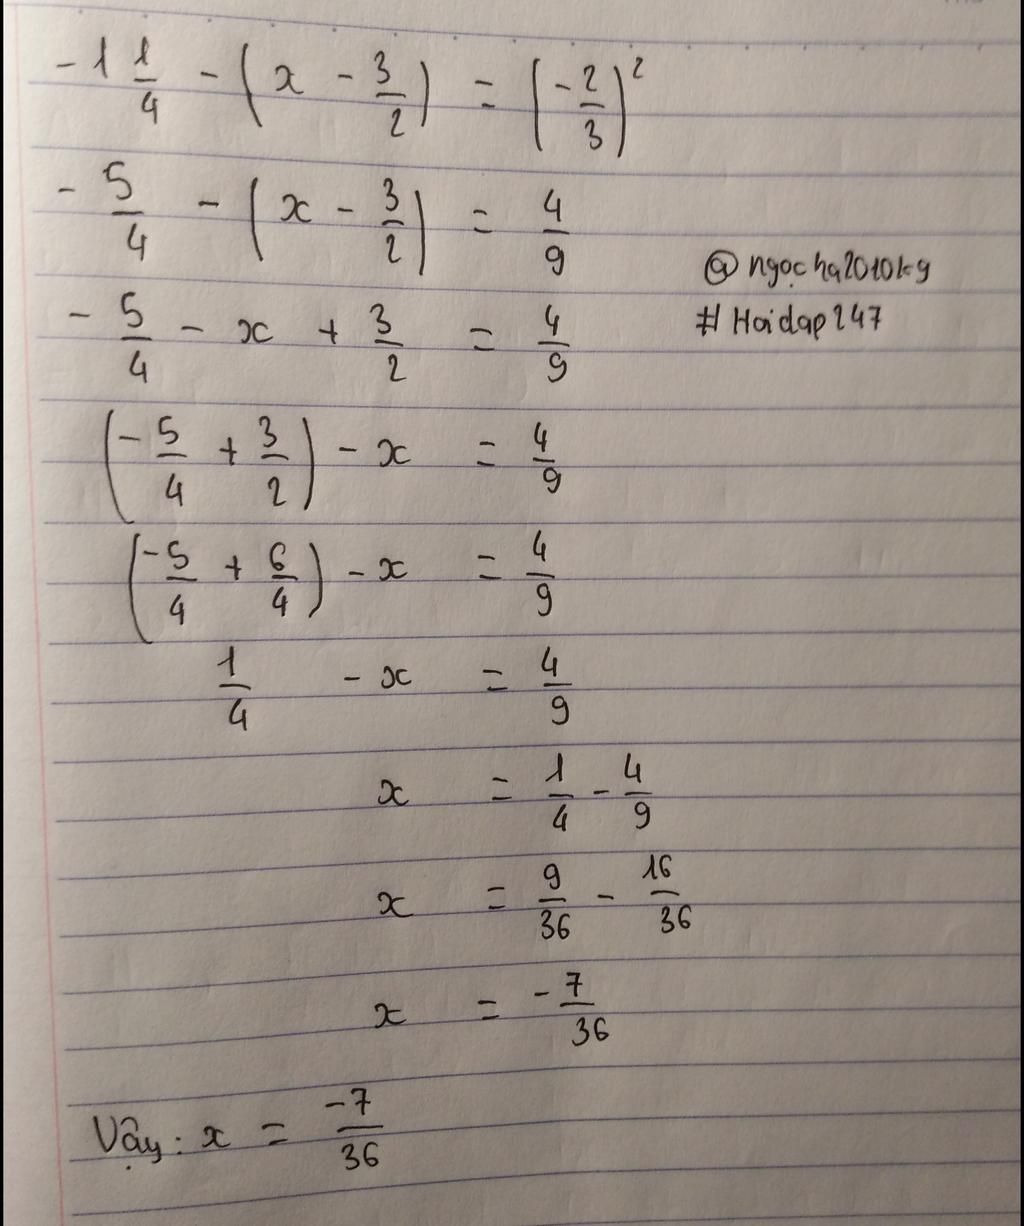 -1 1/4 - (x - 3/2) = (-2/3)²
-5/4 - (x - 3/2) = 4/9
@ngocha2010kg
-5/4 - x + 3/2 = 4/9
#Hoidap247
(-5/4 + 3/2) - x = 4/9
(-5/4 + 6/4) - x = 4/9
1/4 - x = 4/9
x = 1/4 - 4/9
x = 9/36 - 16/36
x = -7/36
Vậy: x = -7/36